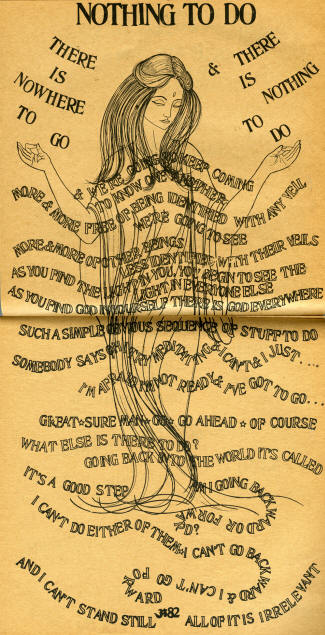 NOTHING TO DO
THERE
IS
NOWHERE
TO
GO
& THERE
IS
NOTHING
TO
DO
& WE'RE GOING TO KEEP COMING
TO KNOW ONE ANOTHER
MORE & MORE FREE OF BEING IDENTIFIED WITH ANY VEIL
WE'RE GOING TO SEE
MORE & MORE OF OTHER BEINGS
LESS IDENTIFIED WITH THEIR VEILS
AS YOU FIND THE LIGHT IN YOU, YOU BEGIN TO SEE THE
LIGHT IN EVERYONE ELSE
AS YOU FIND GOD IN YOURSELF THERE IS GOD EVERYWHERE
SUCH A SIMPLE OBVIOUS SEQUENCE OF STUFF TO DO
SOMEBODY SAYS OH TRY MEDITATION & I CAN'T & I JUST....
I'M AFRAID I'M NOT READY & I'VE GOT TO GO...
GREAT★SURE MAN★GO★GO AHEAD★OF COURSE
WHAT ELSE IS THERE TO DO?
GOING BACK INTO THE WORLD IT'S CALLED
IT'S A GOOD STEP
AM I GOING BACKWARD OR FORWARD?
I CAN'T DO EITHER OF THEM I CAN'T GO BACKWARD & I CAN'T GO FORWARD
AND I CAN'T STAND STILL
ALL OF IT IS IRRELEVANT
82